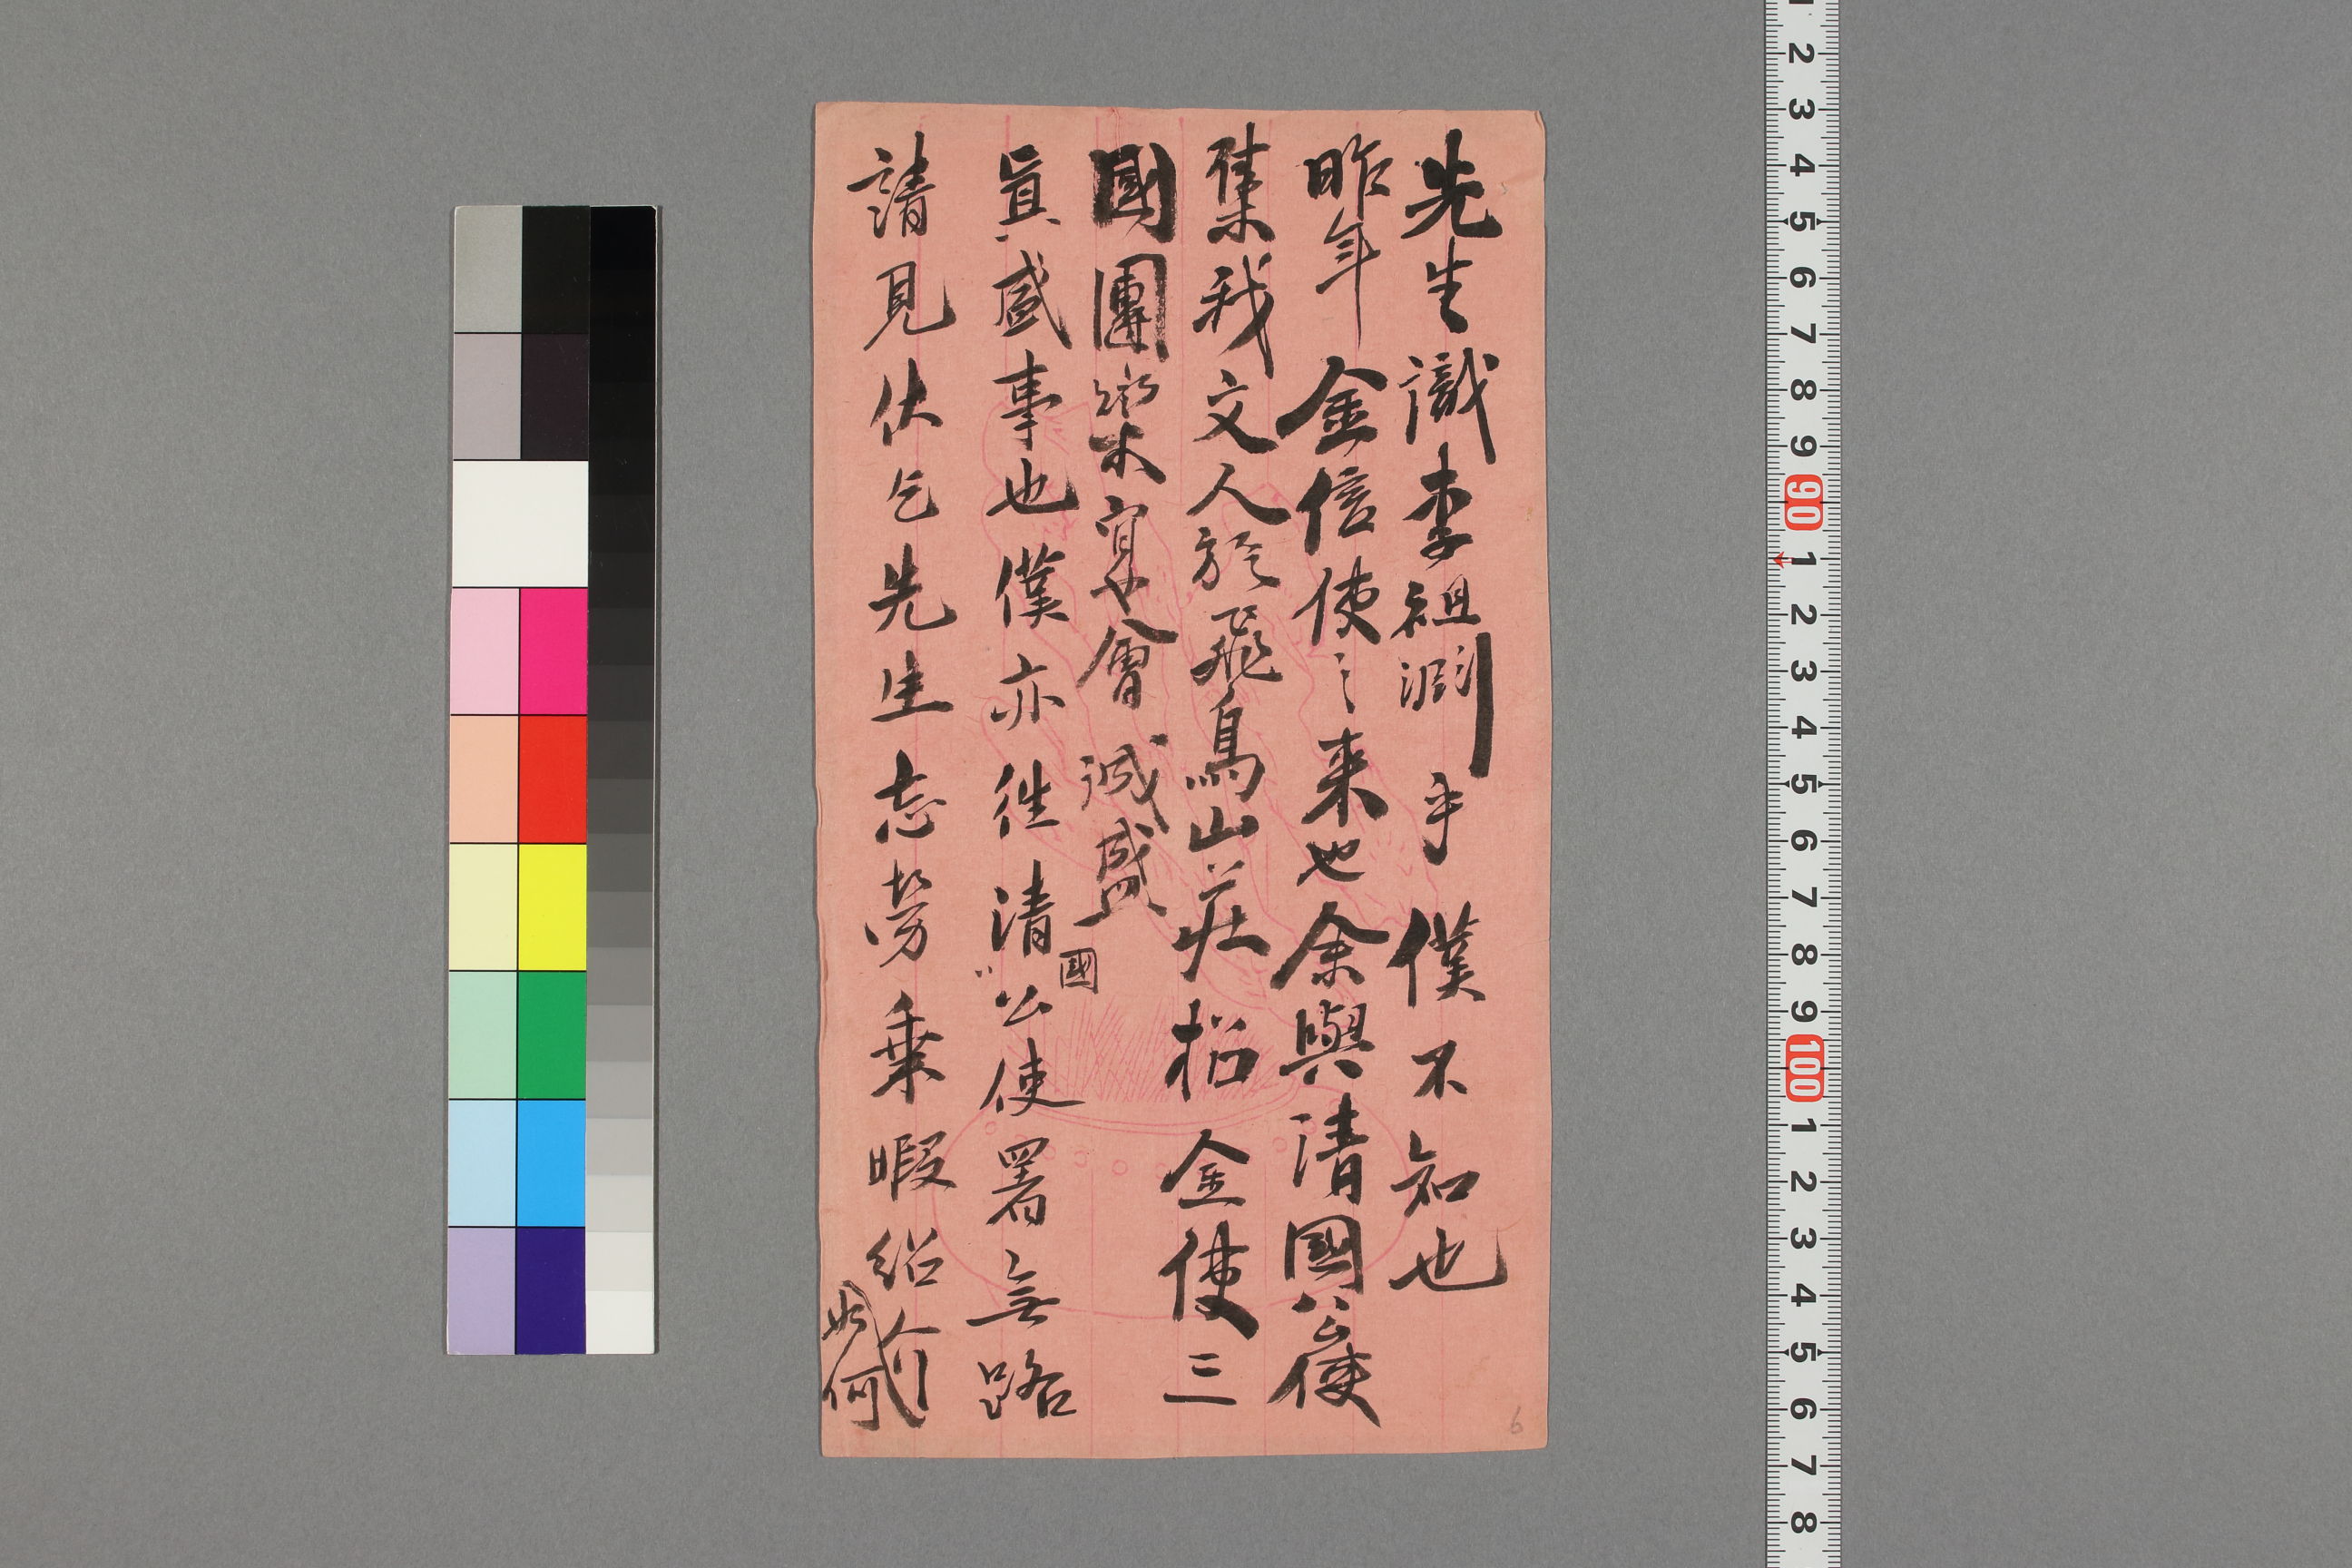 先生識李祖淵乎僕不知也
昨年金信使之来也余與清國公使
集我文人於飛鳥山荘招金使三
國團欒宴會誠盛
眞盛事也僕亦往清國公使署無路
請見伏乞先生忘勞乗暇紹介
如何
6
2 3 4 5 6 7 8 9 90 1 2 3 4 5 6 7 8 9 100 1 2 3 4 5 6 7 8